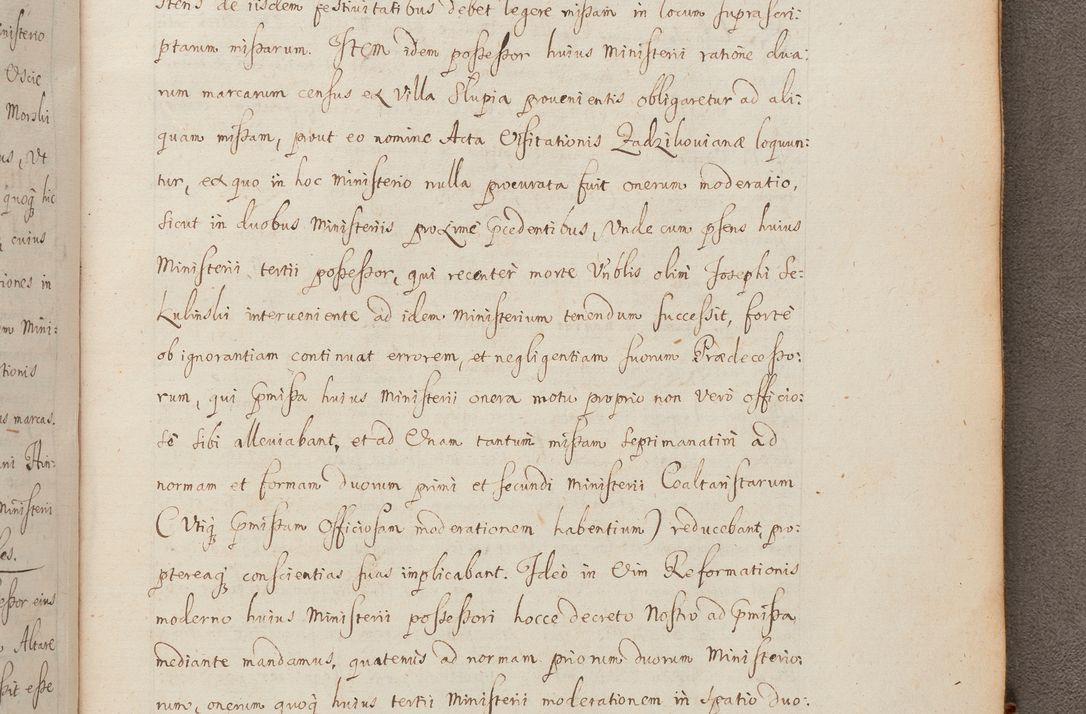 stens de iisdem festivitatibus debet legere missam in locum suprascri:
ptarum missarum. Item idem possessor huius Ministerii ratione dua:
rum marcarum census ex Villa Slupia provenientis obligaretur ad ali:
quam missam, prout eo nomine Acta Visitationis Zadzikovianæ loquun:
tur, ex quo in hoc Ministerio nulla procurata fuit onerum moderatio,
sicut in duobus Ministeriis proxime p̄cedentibus, Unde cum p̄sens huius
Ministerii tertii possessor, qui recenter morte Vn̄blis olim Josephi Se:
kulinski interveniente ad idem Ministerium tenendum successit, forte
ob ignorantiam continuat errorem, et negligentiam suorum Prædecesso:
rum, qui p̄missa huius Ministerii onera motu proprio non verò officio:
sè sibi alleviabant, et ad Unam tantum missam septimanatim ad
normam et formam duorum primi et secundi Ministerii Coaltaristarum
(Utiq̨ p̄missam Officiosam moderationem habentium) reducebant, pro:
ptereaq̨ conscientias suas implicabant. Ideò in Vim Reformationis
moderno huius Ministerii possessori hocce decreto Nostro ad p̄missa
mediante mandamus, quatenus ad normam priorum duorum Ministerio:
rum, onerum quoq̨ huius tertii Ministerii moderationem in spatio duo:
nisterio
Oscie
Morski
us, Ut
quoq̨ hic
cuius
iones in
m Mini:
tionis
as marcas.
Ministerii
les.
essor eius
Altare
sit esse